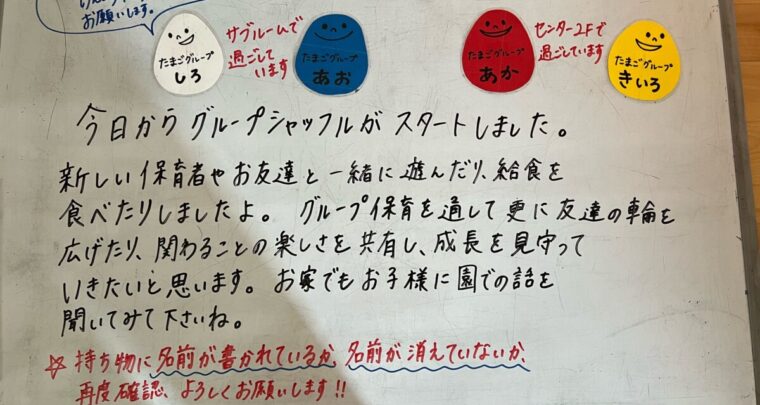 お願いします。
たまごグループ
しろ
サブルームで
過ごして
います
たまごグループ
あお
たまごグループ
あか
センター2Fで
過ごしています
たまごグループ
きいろ
今日から グループシャッフルが スタートしました。
新しい保育者や お友達と 一緒に 遊んだり、給食を
食べたりしましたよ。 グループ保育を通して 更に 友達の輪を
広げたり、関わることの楽しさを 共有し、成長を 見守って
いきたいと思います。 お家でも お子様に 園での話を
聞いてみて下さいね。
☆ 持ち物に名前が書かれているか、名前が消えていないか、
再度確認、よろしくお願いします!!